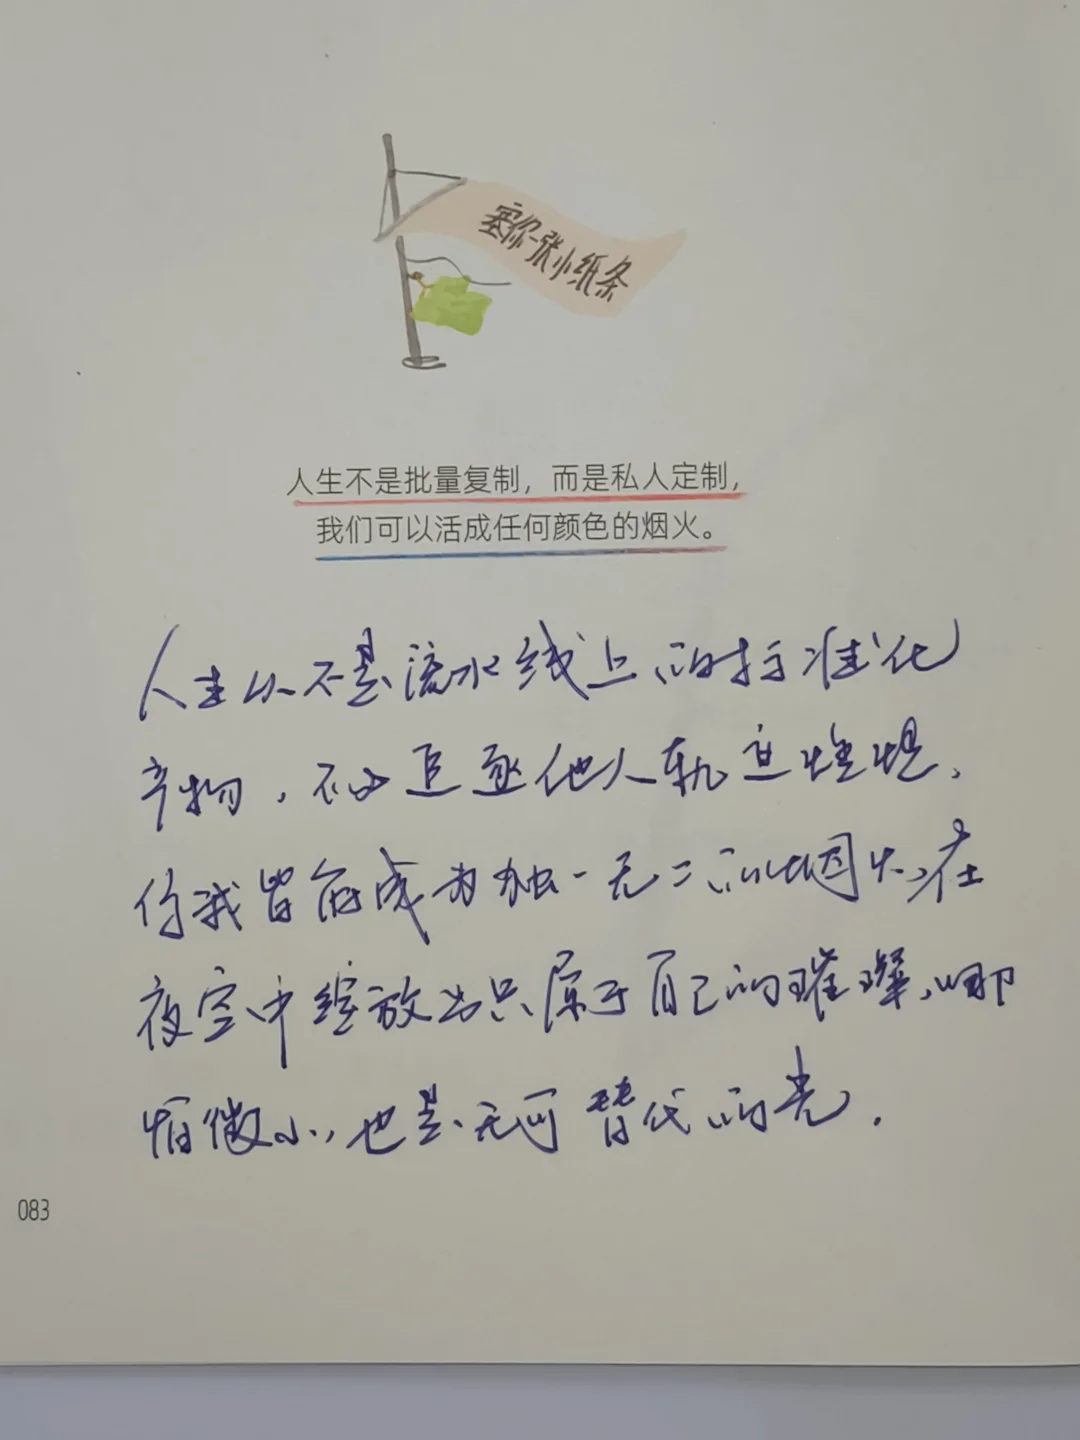 塞你一张小纸条
人生不是批量复制，而是私人定制，
我们可以活成任何颜色的烟火。
人生从不是流水线上的标准化
产物，不必追逐他人轨迹
你我皆能成为独一无二的烟火，在
夜空中绽放出只属于自己的璀璨，哪
怕微小，也是无可替代的光．
083